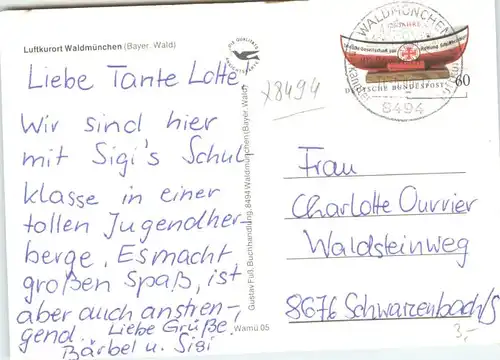 Luftkurort Waldmünchen (Bayer. Wald)
Liebe Tante Lotte,
Wir sind hier
mit Sigi's Schul
klasse in einer
tollen Jugendher-
berge. Es macht
großen Spaß, ist
aber auch anstren-
gend. Liebe Grüße.
Bärbel u. Sigi
Wamü 05
Gustav Fuß, Buchhandlung, 8494 Waldmünchen (Bayer. Wald)
X8494
WALDMÜNCHEN
8494
60
DEUTSCHE BUNDESPOST
Frau
Charlotte Ouvrier
Waldsteinweg
8676 Schwarzenbach/S
3,-